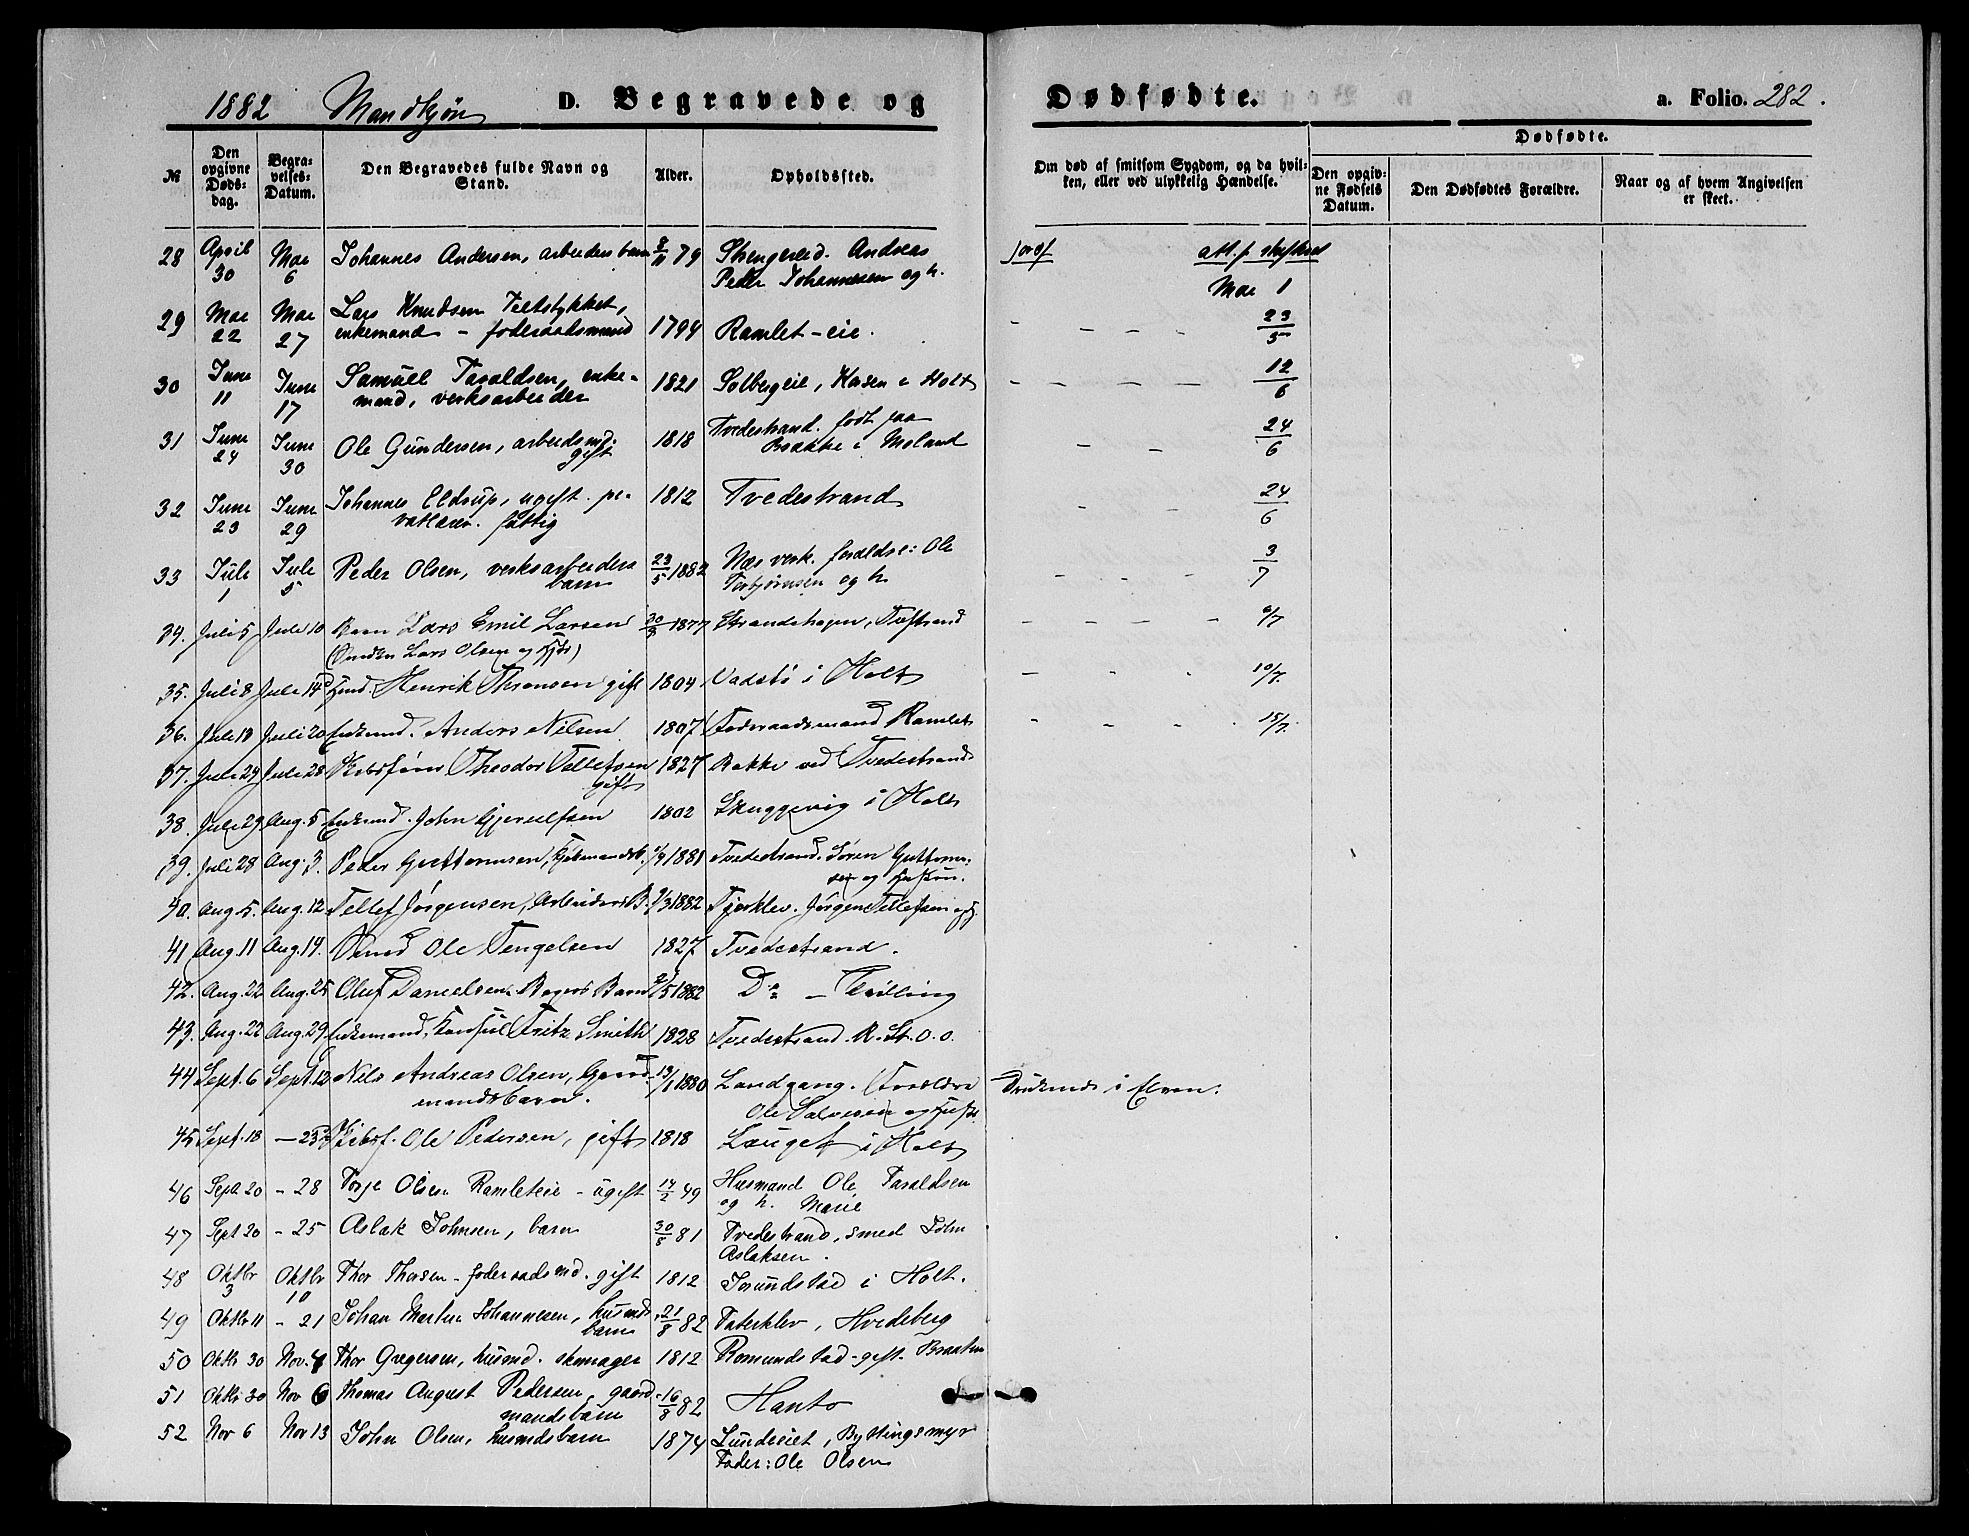 1882 Mandkjøn D. Begravede og Dødfødte. a. Folio. 282.
№ Den opgivne Døds-dag. Begra-velses-Datum. Den Begravedes fulde Navn og Stand. Alder. Opholdssted. Om død af smitsom Sygdom, og da hvil-ken, eller ved ulykkelig Hændelse. Dødfødte. Den opgiv-ne Fødsels Datum. Den Dødfødtes Forældre. Naar og af hvem Angivelsen er skeet.
28 April 30 Mai 6 Johannes Andersen, arbeiders barn 79 Strengereid. Andreas
Peder Johannesen og h. Mai 1
29 Mai 22 Mai 27 Lars Knudsen
enkemand - foderaadsmand 1794 Ramlet-eie. 23/5
30 Juni 11 Juni 17 Samuel Taraldsen, enke-
mand, verksarbeider 1821 Solbergeie, i Holt 12/6
31 Juni 24 Juni 30 Ole Gundersen, arbeidsmd.
gift 1818 Tvedestrand. født paa
Brække i Moland 24/6
32 Juni 23 Juni 29 Johannes Eldrup, ugift. pri-
vatlærer. fattig 1812 Tvedestrand 24/6
33 Juli 1 Juli 5 Peder Olsen, verksarbeiders
barn 23/5 1882 Næs verk. forældre: Ole
Torbjørnsen og h. 3/7
34. Juli 5 Juli 10 Barn Lars Emil Larsen 1877 6/7
35. Juli 8 Juli 14 Henrik Thronsen gift 1804 Vadstø i Holt 10/7.
36. Juli 20 Enkemd. Anders Nilsen 1807 Foderaadsmand Ramlet 15/7.
37. Juli 24 Juli 28 Theodor Tellefsen
gift 1827 Bakke ved Tvedestrand
38. Juli 29 Aug. 5 Enkemd. John Gjerulfsen 1802 Skuggevig i Holt
39. Juli 28 Aug. 3. Peder Guttormsen, 1881 Tvedestrand. Søren Guttorm-
sen og Hustru.
40. Aug 5. Aug. 12 Tellef Jörgensen, Arbeiders B. 1882 Jörgen Tellefsen og
41 Aug 11 Aug. 14. Ole Tengelsen 1827 Tvedestrand.
42. Aug. 22 Aug. 25 Oluf Danielsen Bagers Barn 1882 Do - Tvilling
43. Aug. 22 Aug. 29 Enkemand, Konsul Fritz Smith 1828 Tvedestrand. R. St. O. O.
44 Sept. 6 Sept. 12 Nils Andreas Olsen, Gaard-
mandsbarn. 13/1 1880 Landgang. Forældre
Ole Salvesen og Hustr. Druknede i Elven.
45 Sept. 18 - 23 Ole Pedersen, gift 1818 i Holt
46 Sept. 20 - 28 Torje Olsen Ramleteie - ugift 49 Husmand Ole Taraldsen
og h. Marie
47 Sept 20 - 25 Aslak Johnsen, barn 81 Tvedestrand, smed John
Aslaksen.
48 Oktbr 3 Oktbr 10 Thor Thorsen - foderaadsmd. gift 1812 Jorundstad i Holt.
49 Oktbr 11 - 21 Johan Martin Johannesen, husmds
barn 21/8 82 Faterklev, Hvedeberg
50 Oktbr 30 Nov. 4 Thor Gregersen, husmd. skomager 1812 Romundstad - gift
51 Oktbr 30 Nov 6 Thomas August Pedersen, gaard-
mandsbarn 16/8 82 Hanto
52 Nov 6 Nov 13 John Olsen, husmdsbarn 1874 Lundeiet, Byttingsmyr
Fader: Ole Olsen